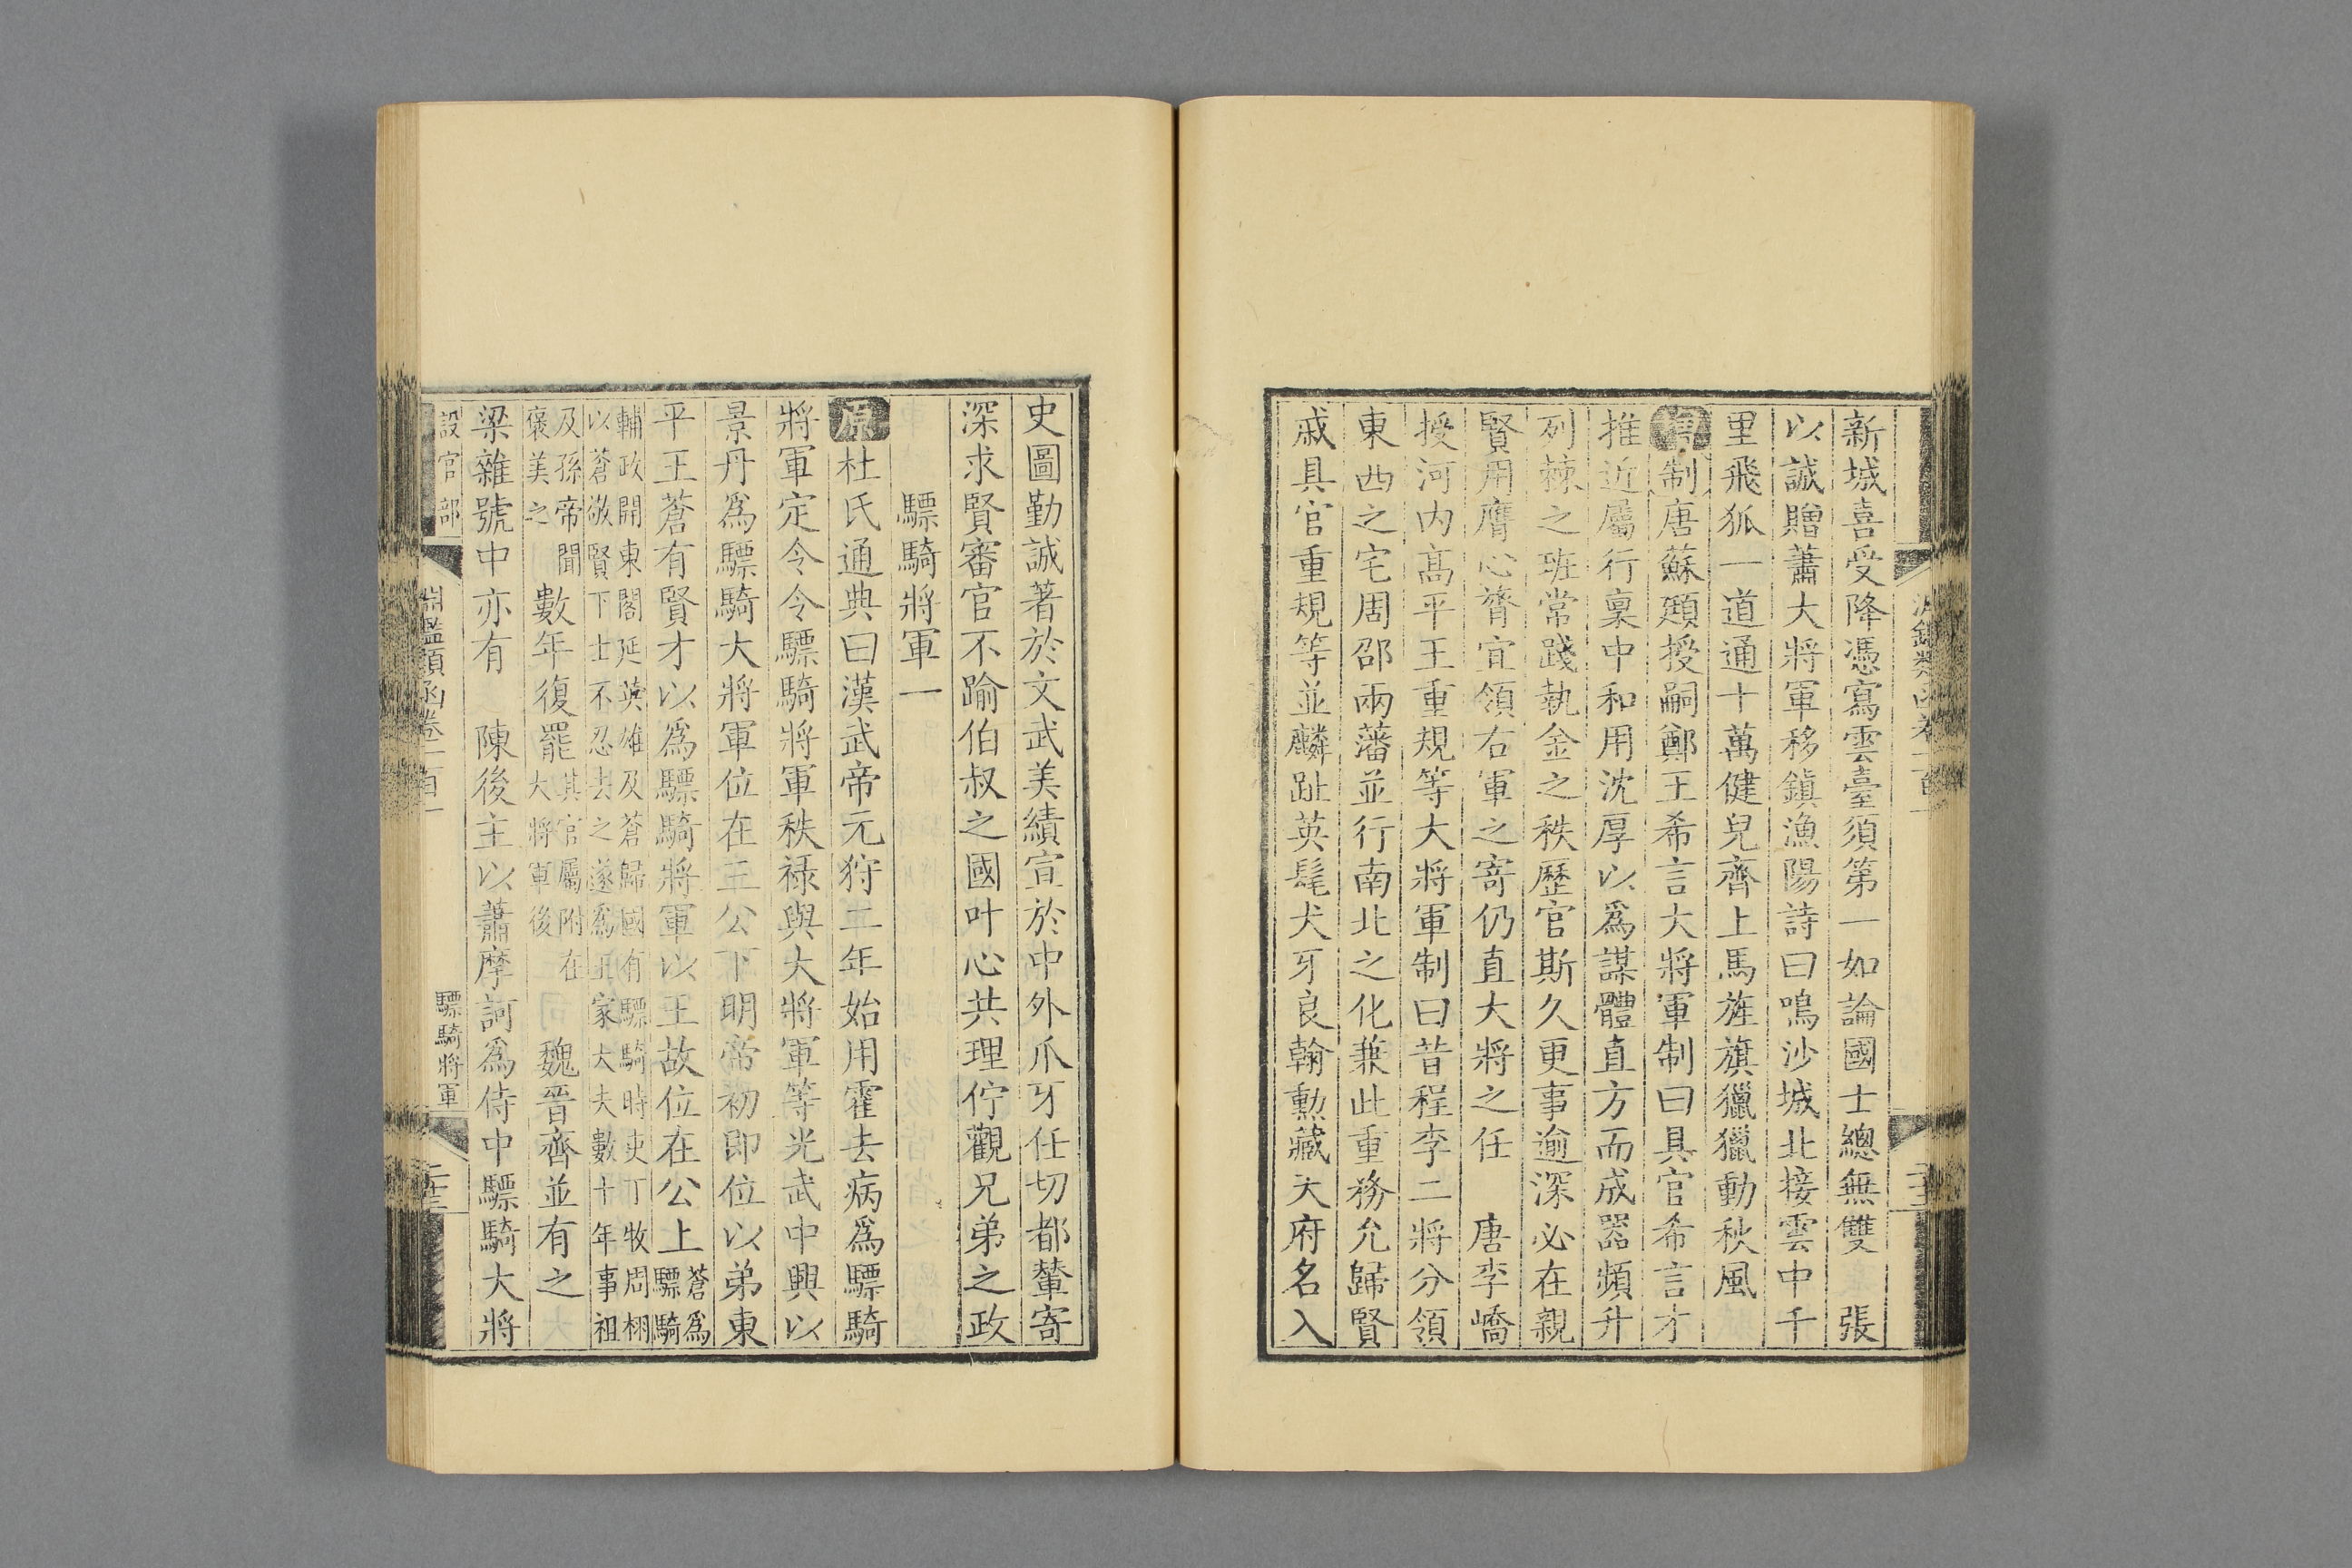 新城喜受降憑寫雲臺須第一如論國士總無雙　張
以誠贈蕭大將軍移鎮漁陽詩曰鳴沙城北接雲中千
里飛狐一道通十萬健兒齊上馬旌旗獵獵動秋風
制唐蘇頲授嗣鄭王希言大將軍制曰具官希言才
推近屬行稟中和用沈厚以爲謀體直方而成器頻升
列棘之班常踐執金之秩歷官斯久更事逾深必在親
賢用膺心膂宜領右軍之寄仍直大將之任　唐李嶠
授河內高平王重規等大將軍制曰昔程李二將分領
東西之宅周邵兩藩並行南北之化兼此重務允歸賢
戚具官重規等並麟趾英髦犬牙良翰勳藏天府名入
史圖勤誠著於文武美績宣於中外爪牙任切都輦寄
深求賢審官不踰伯叔之國叶心共理佇觀兄弟之政
驃騎將軍一
原杜氏通典曰漢武帝元狩二年始用霍去病爲驃騎
將軍定令令驃騎將軍秩祿與大將軍等光武中興以
景丹爲驃騎大將軍位在三公下明帝初即位以弟東
平王蒼有賢才以爲驃騎將軍以王故位在公上蒼爲驃騎
輔政開東閣延英雄及蒼歸國有驃騎時吏丁牧周栩
以蒼敬賢下士不忍去之遂爲王家大夫數十年事祖
及孫帝聞褒美之數年復罷其官屬附在大將軍後　魏晉齊並有之
梁雜號中亦有　陳後主以蕭摩訶爲侍中驃騎大將
設官部
淵鑑類函卷一百一
驃騎將軍